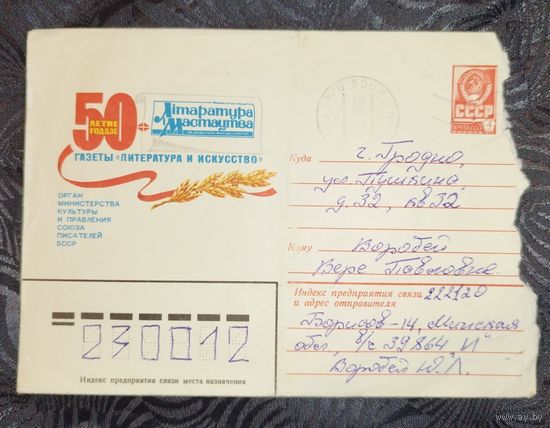 50
ЛЕТИЕ
ГОДДЗЕ
Літаратура
і Мастацтва
ГАЗЕТЫ «ЛИТЕРАТУРА И ИСКУССТВО»
ОРГАН
МИНИСТЕРСТВА
КУЛЬТУРЫ
И ПРАВЛЕНИЯ
СОЮЗА
ПИСАТЕЛЕЙ
БССР
СССР
Куда г. Гродно,
ул. Пушкина,
д. 32, кв 32
Кому Воробей
Вере Павловне.
Индекс предприятия связи 222120
и адрес отправителя
Борисов-14, Минская
обл, в/ч 39864 "И"
Воробей
230012
Индекс предприятия связи места назначения
www.ay.by